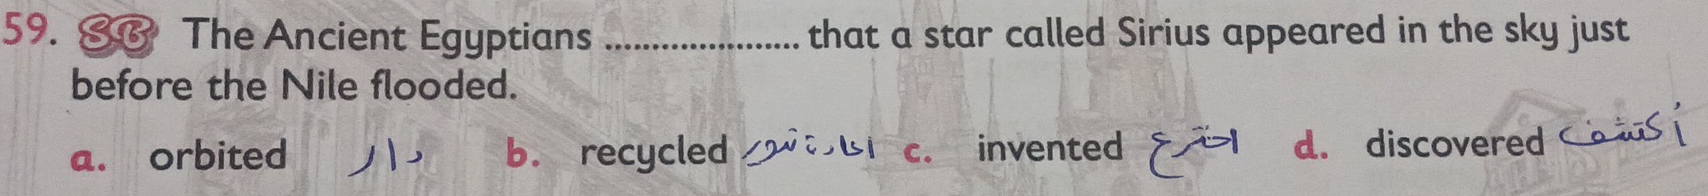 59. SB The Ancient Egyptians ..................... that a star called Sirius appeared in the sky just
before the Nile flooded.
a. orbited دار b. recycled c. invented اخترع d. discovered أكتشف